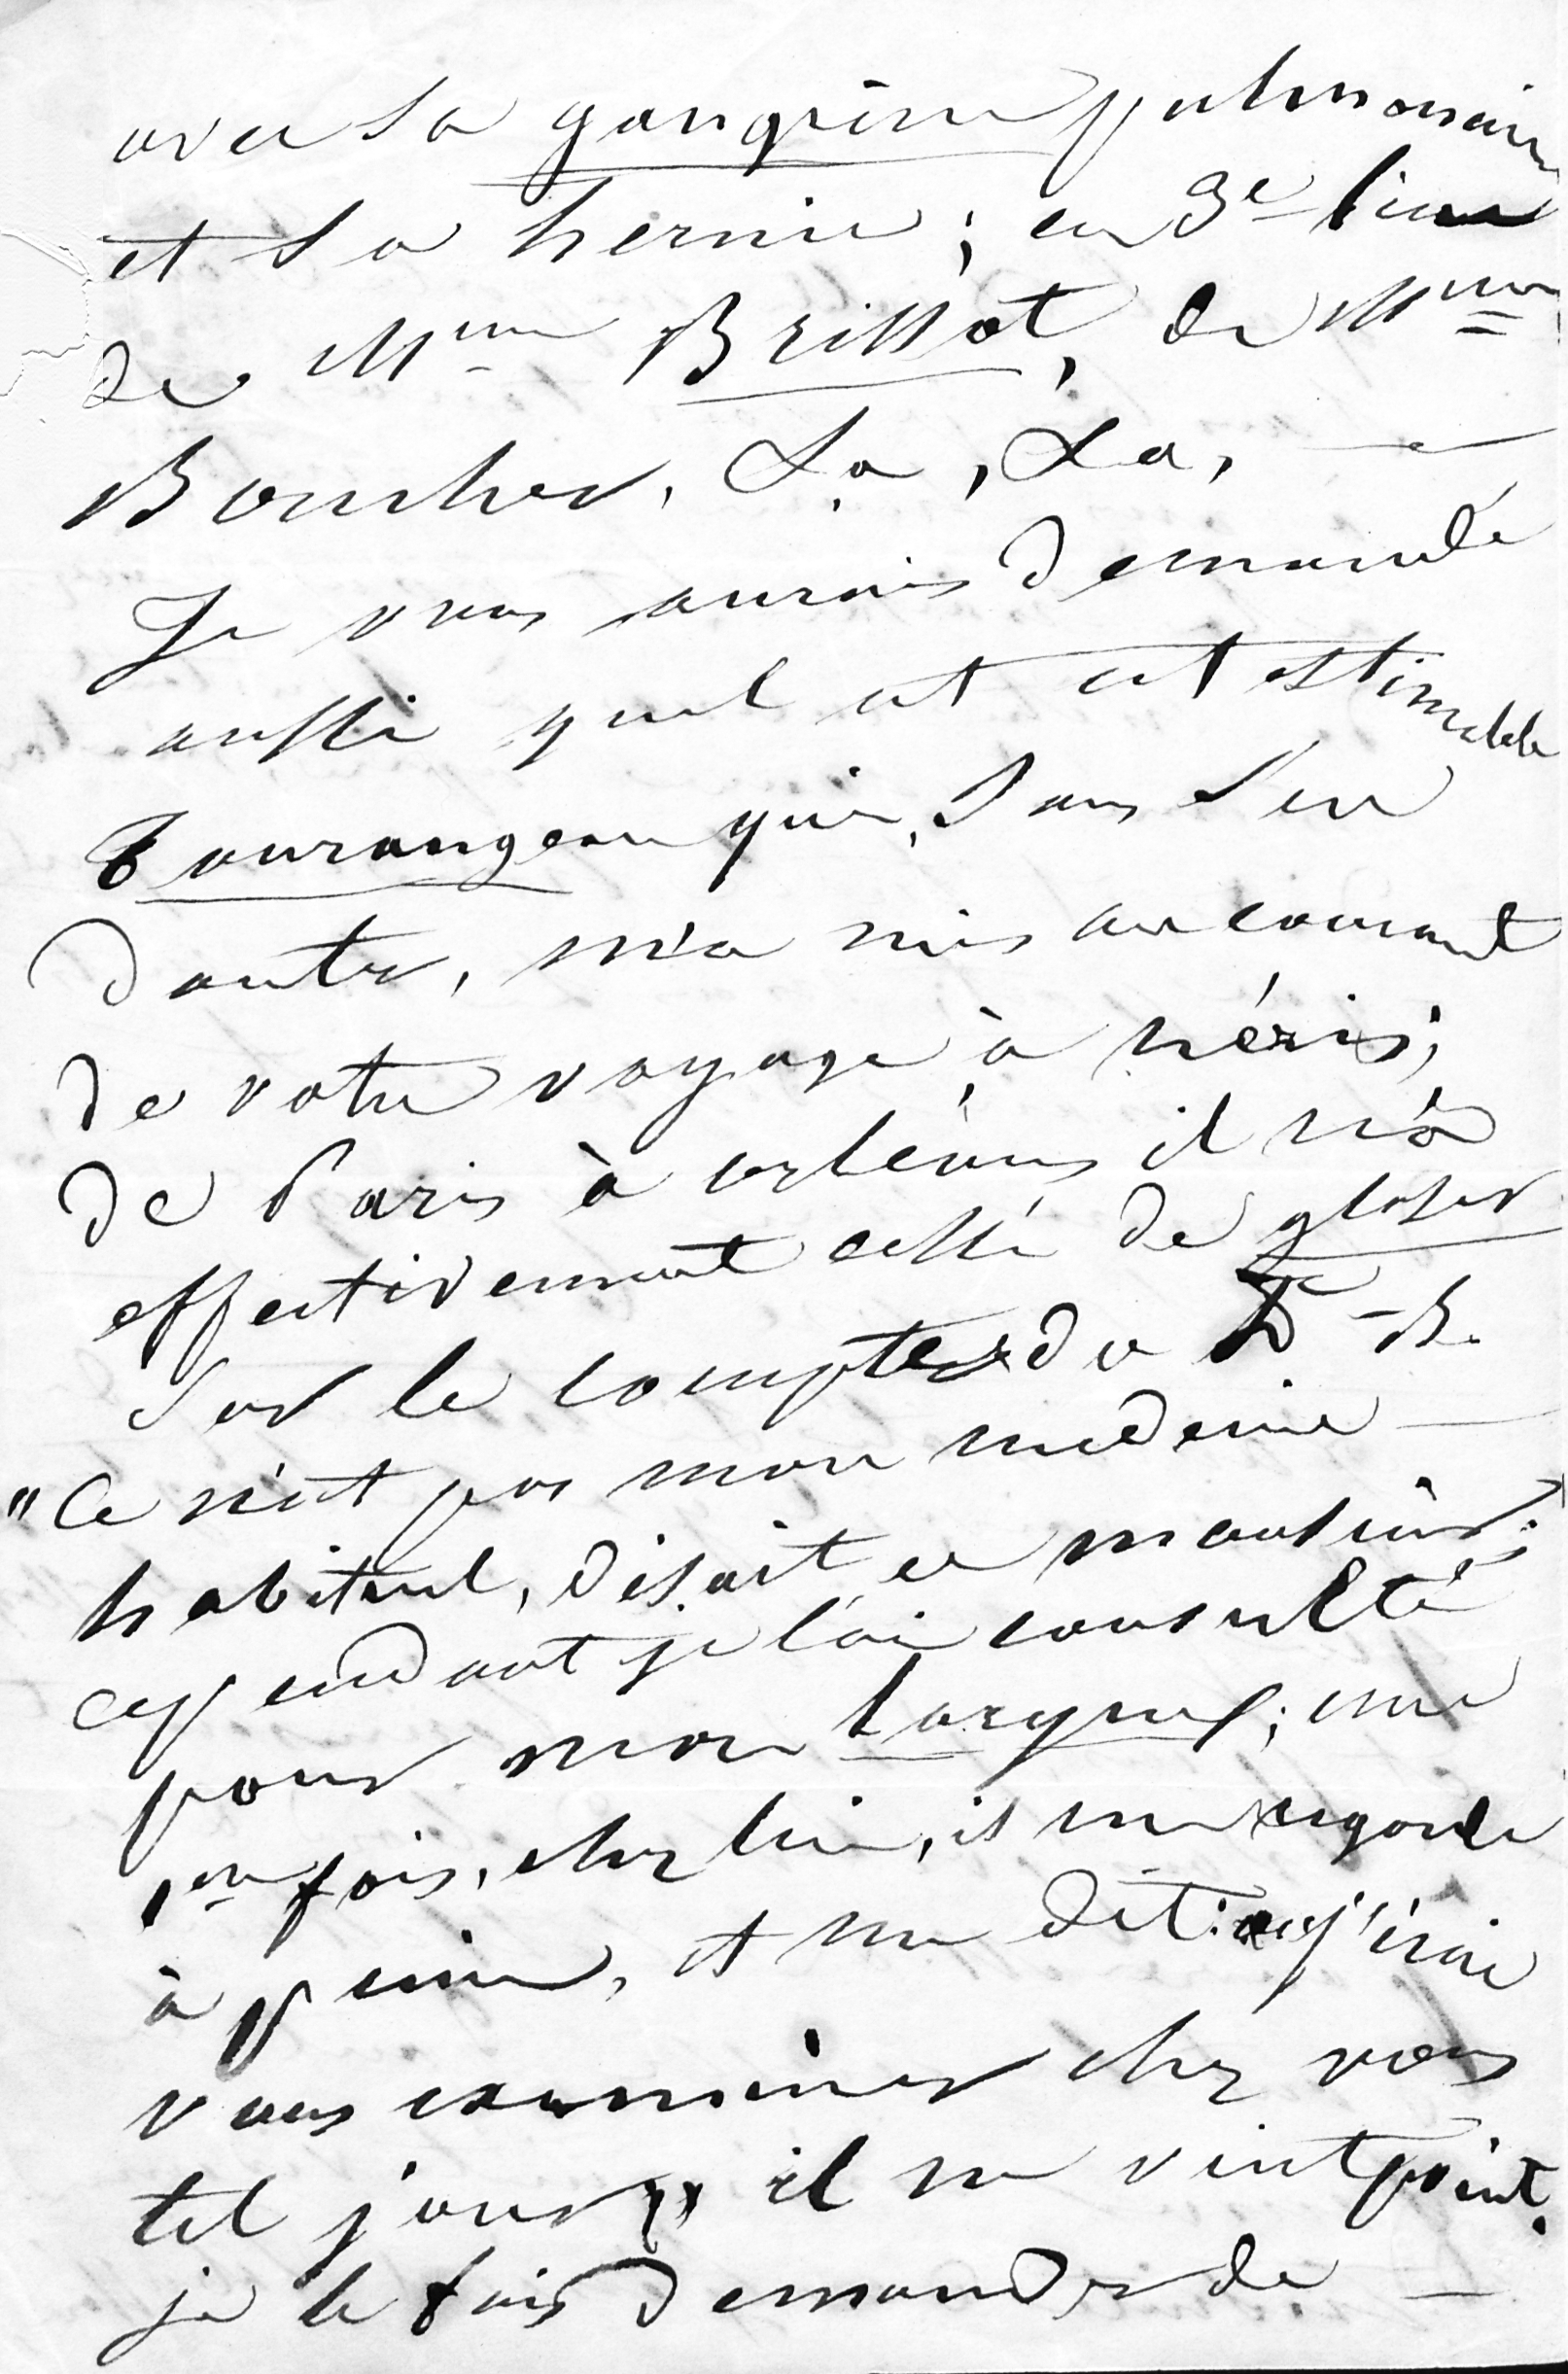 avec sa gangrène pulmonaire
et sa hernie; en 3e lieu
de Mme Brissot, de Mme
Boucher, &a, &a, —
Je vous aurais demandé
aussi quel est cet estimable
Tourangeau qui, sans s'en
douter, m'a mis au courant
de votre voyage à Néris;
de Paris à Orléans il n'a
effectivement cessé de gloser
sur le compte du Dr B.
"Ce n'est pas mon médecin
habituel, disait ce monsieur;
cependant je l'ai consulté
pour mon larynx; une
1ère fois, chez lui, il me regarde
à peine, et me dit: j'irai
vous examiner chez vous
tel jour" il ne vint point.
je le fais demander de —